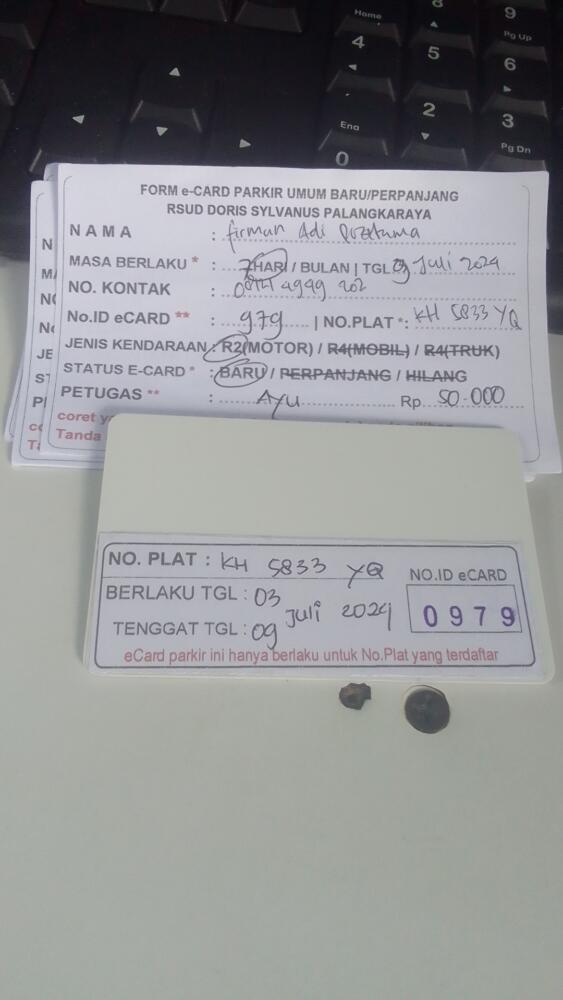 Home
8
9
Pg Up
4
5
6
End
2
3
Pg Dn
0
FORM e-CARD PARKIR UMUM BARU/PERPANJANG
RSUD DORIS SYLVANUS PALANGKARAYA
NAMA : firman Adi
MASA BERLAKU * : 7 HARI / BULAN | TGL 03 Juli 2024
NO. KONTAK : 4999 202
No.ID eCARD ** : 979 | NO.PLAT *: KH 5833 YQ
JENIS KENDARAAN : R2(MOTOR) / R4(MOBIL) / R4(TRUK)
STATUS E-CARD * : BARU / PERPANJANG / HILANG
PETUGAS ** : AYU Rp. 50.000
coret
Tanda
NO. PLAT : KH 5833 YQ
NO.ID eCARD
BERLAKU TGL : 03 Juli 2024
0979
TENGGAT TGL : 09
eCard parkir ini hanya berlaku untuk No.Plat yang terdaftar